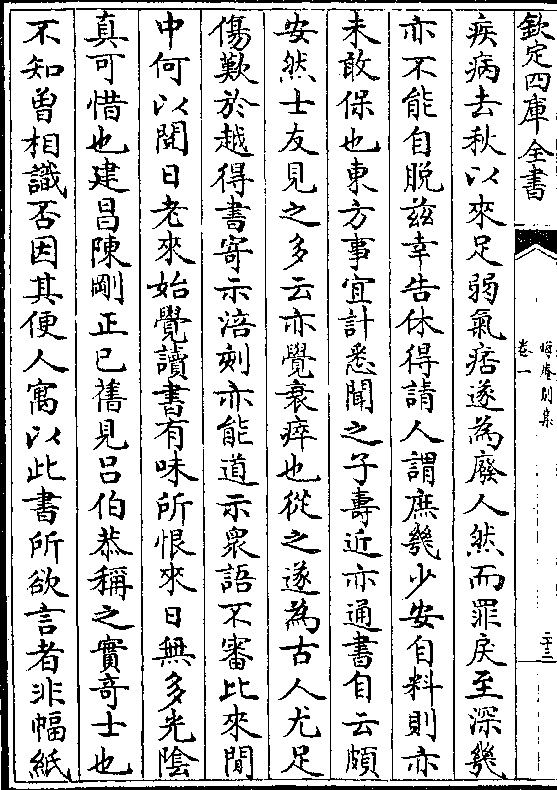 欽定四庫全書
晦庵別集
卷一
二十三
疾病去秋以來足弱氣痞遂為廢人然而罪戾至深幾
亦不能自脫兹幸告休得請人謂庶幾少安自料則亦
未敢保也東方事宜計悉聞之子壽近亦通書自云頗
安然士友見之多云亦覺衰瘁也從之遂為古人尤足
傷歎於越得書寄示涪刻亦能道示衆語不審比來閒
中何以閱日老來始覺讀書有味所恨來日無多光陰
真可惜也建昌陳剛正已舊見吕伯恭稱之實奇士也
不知曽相識否因其便人寓以此書所欲言者非幅紙